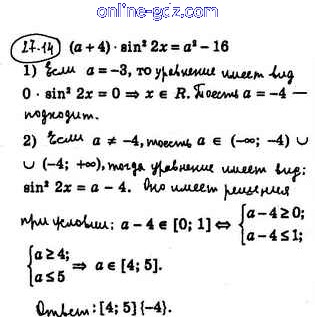 online-gdz.com
27.14 (a + 4) · sin² 2x = a² − 16
1) Если a = −3, то уравнение имеет вид
0 · sin² 2x = 0 ⇒ x ∈ R. То есть a = −4 —
подходит.
2) Если a ≠ −4, то есть a ∈ (−∞; −4) ∪
∪ (−4; +∞), тогда уравнение имеет вид:
sin² 2x = a − 4. Оно имеет решения
при условии: a − 4 ∈ [0; 1] ⇔ { a − 4 ≥ 0;
a − 4 ≤ 1;
{ a ≥ 4;
a ≤ 5 ⇒ a ∈ [4; 5].
Ответ: [4; 5] {−4}.